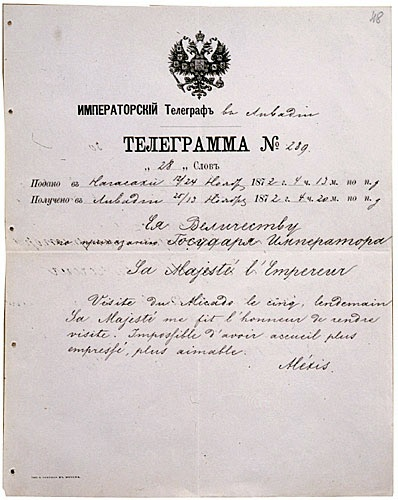 48
ИМПЕРАТОРСКIЙ Телеграфъ въ Ливадiи
ТЕЛЕГРАММА № 239.
„ 28 „ Словъ
Подано въ Нагасаки 12/24 Нояб 1872 г. 4 ч. 13 м. по п.
Получено въ Ливадiи Нояб 1872 г. 4 ч. 20 м. по п.
Ея Величеству
по приказанию Государя Императора
Sa Majesté l'Empereur
Visite du Micado le cinq, lendemain
Sa Majesté me fit l'honneur de rendre
visite. Impossible d'avoir accueil plus
empressé, plus aimable.
Alexis.